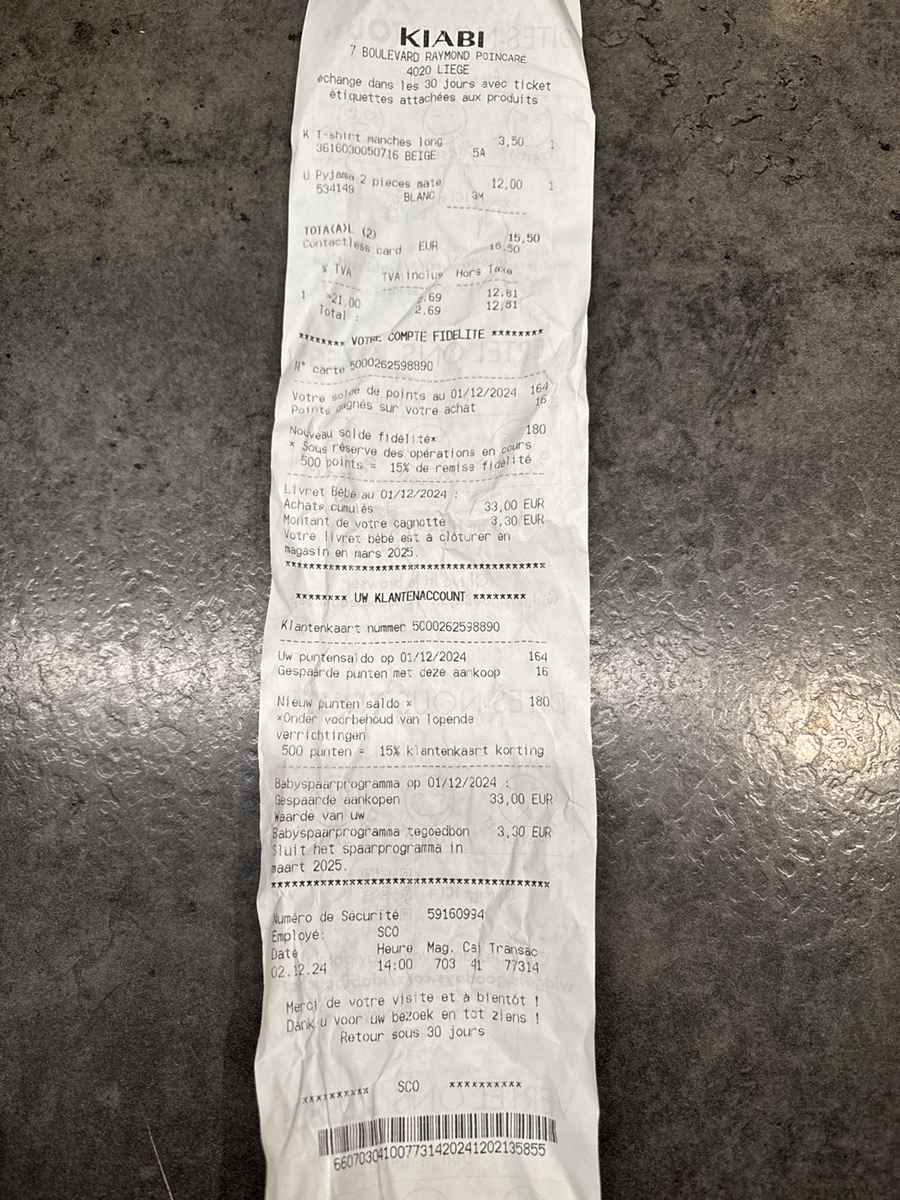 KIABI
7 BOULEVARD RAYMOND POINCARE
4020 LIEGE
échange dans les 30 jours avec ticket
étiquettes attachées aux produits
K T-shirt manches long 3,50 1
3616030050716 BEIGE 5A
U Pyjama 2 pieces mate 12,00 1
534149 BLANC 3M
TOTA(A)L (2) 15,50
Contactless card EUR 15,50
% TVA TVA Inclus Hors Taxe
1 >21.00 2.69 12.81
Total : 2.69 12.81
******** VOTRE COMPTE FIDELITE ********
N° carte 5000262598890
Votre solde de points au 01/12/2024 164
Points gagnés sur votre achat 16
Nouveau solde fidélité* 180
* Sous réserve des opérations en cours
500 points = 15% de remise fidélité
Livret Bébé au 01/12/2024 :
Achats cumulés 33,00 EUR
Montant de votre cagnotte 3,30 EUR
Votre livret bébé est à clôturer en
magasin en mars 2025.
****************************************
******** UW KLANTENACCOUNT ********
Klantenkaart nummer 5000262598890
Uw puntensaldo op 01/12/2024 164
Gespaarde punten met deze aankoop 16
Nieuw punten saldo * 180
*Onder voorbehoud van lopende
verrichtingen
500 punten = 15% klantenkaart korting
Babyspaarprogramma op 01/12/2024 :
Gespaarde aankopen 33,00 EUR
Waarde van uw
Babyspaarprogramma tegoedbon 3,30 EUR
Sluit het spaarprogramma in
maart 2025.
****************************************
Numéro de Sécurité 59160994
Employé: SCO
Date Heure Mag. Cai Transac
02.12.24 14:00 703 41 77314
Merci de votre visite et à bientôt !
Dank u voor uw bezoek en tot ziens !
Retour sous 30 jours
********** SCO **********
660703041007731420241202135855